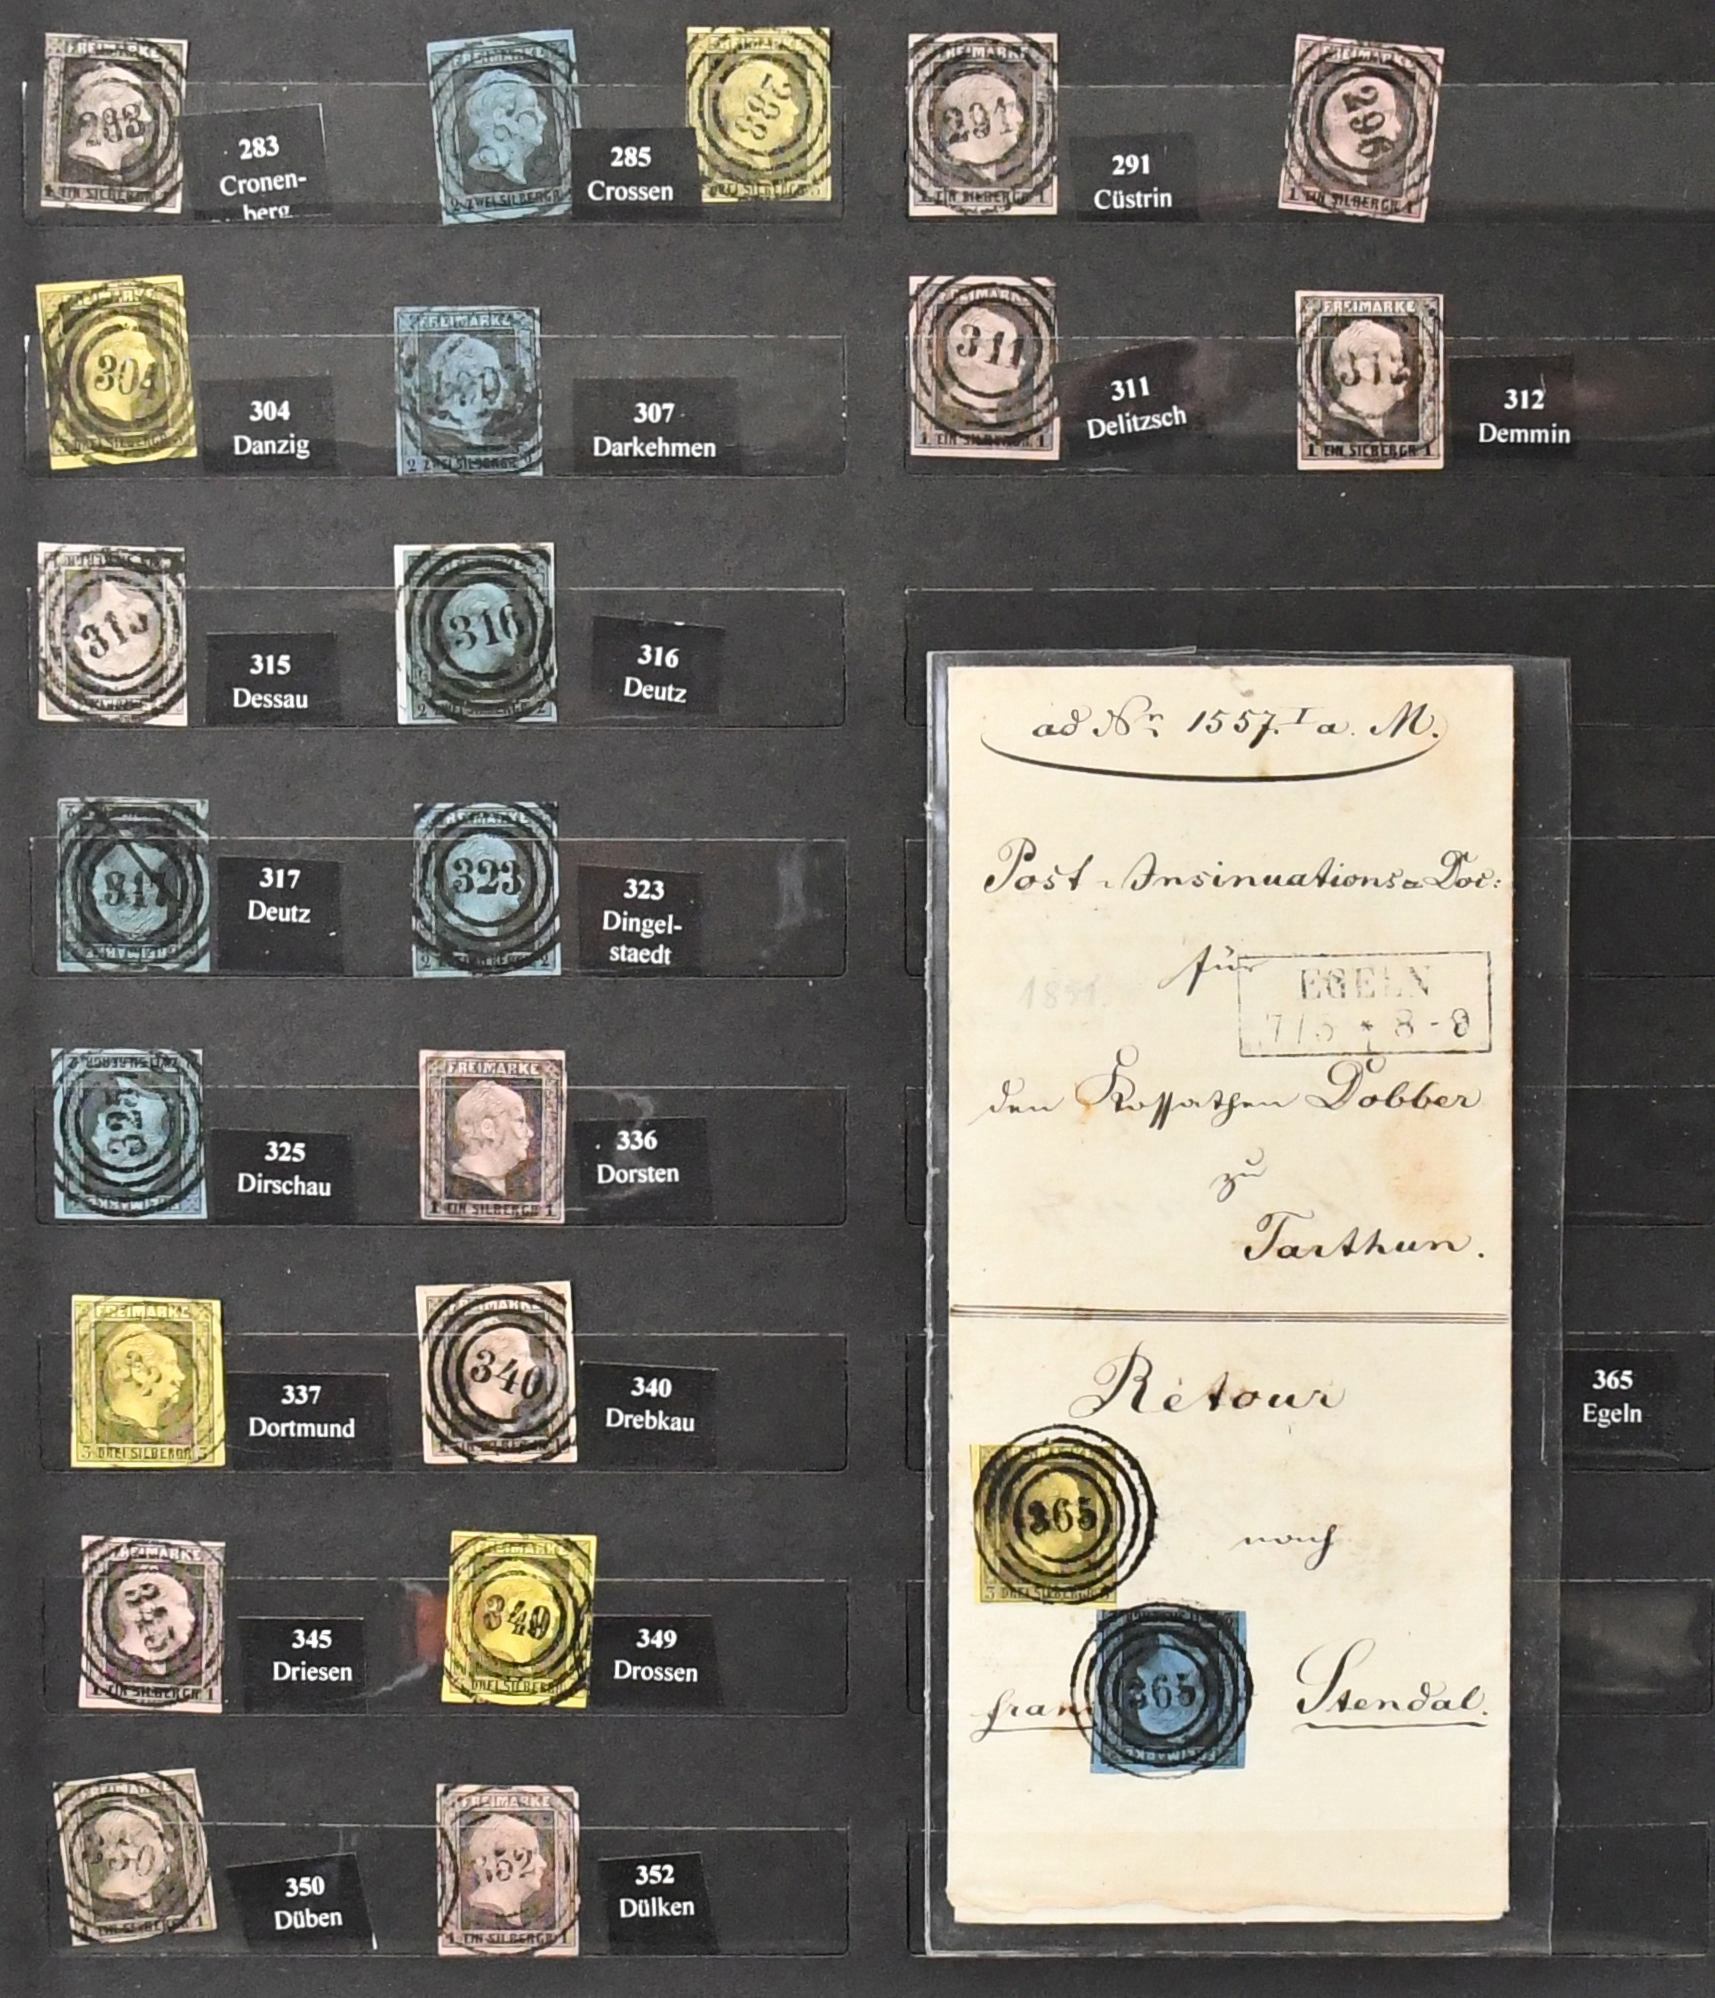 FREIMARKE
283
EIN SILBERGR
283
Cronen-
berg
FREIMARKE
2 ZWEI SILBERGR
285
Crossen
288
DREI SILBERGR 3
291
1 EIN SILBERGR 1
291
Cüstrin
296
1 EIN SILBERGR 1
304
304
Danzig
FREIMARKE
2 ZWEI SILBERGR
307
Darkehmen
FREIMARKE
311
1 EIN SILBERGR 1
311
Delitzsch
FREIMARKE
312
1 EIN SILBERGR 1
312
Demmin
315
315
Dessau
316
316
Deutz
317
317
Deutz
FREIMARKE
323
323
Dingel-
staedt
325
325
Dirschau
FREIMARKE
1 EIN SILBERGR 1
336
Dorsten
FREIMARKE
3 DREI SILBERGR 3
337
Dortmund
FREIMARKE
340
340
Drebkau
FREIMARKE
345
1 EIN SILBERGR 1
345
Driesen
FREIMARKE
349
DREI SILBERGR
349
Drossen
FREIMARKE
350
350
Düben
FREIMARKE
352
1 EIN SILBERGR 1
352
Dülken
ad Nr. 1557. I a. M.
Post-Insinuations-Doc:
für
1851.
EGELN
7/5 * 8-9
den Kossathen Dobber
zu
Tarthun.
Retour
365
3 DREI SILBERGR
nach
365
Stendal.
FREIMARKE
365
Egeln